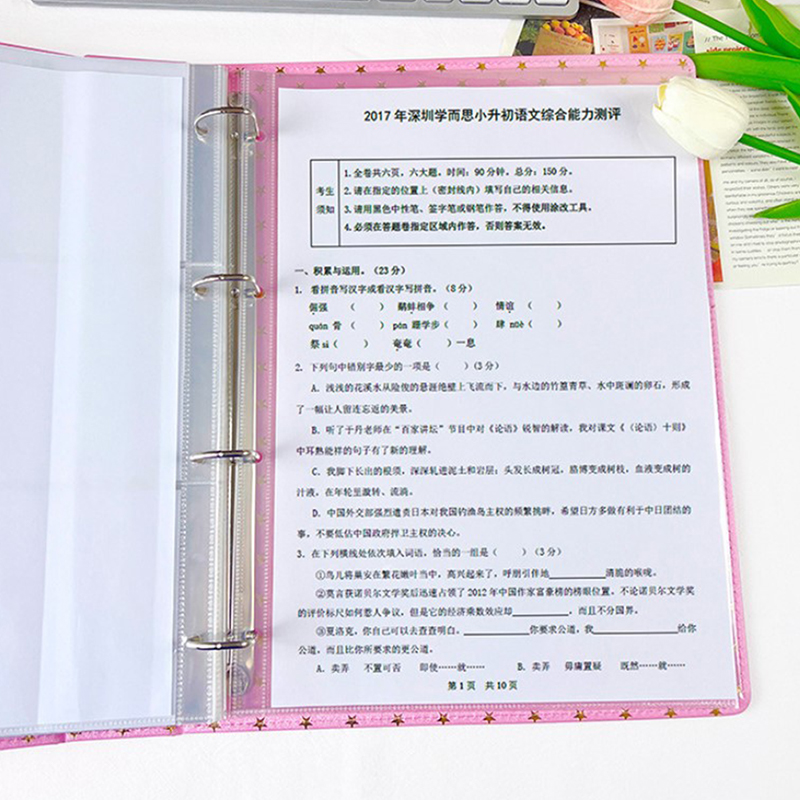 2017年深圳学而思小升初语文综合能力测评
考生须知
1.全卷共六页，六大题，时间：90分钟，总分：150分。
2.请在指定的位置上（密封线内）填写自己的相关信息。
3.请用黑色中性笔、签字笔或钢笔作答，不得使用涂改工具。
4.必须在答题卷指定区域内作答，否则答案无效。
一、积累与运用。（23分）
1. 看拼音写汉字或看汉字写拼音。（8分）
倔强 （ ） 鹬蚌相争 （ ） 情谊 （ ）
quán 骨 （ ） pán 跚学步（ ） 肆 nüè（ ）
祭 sì（ ） 奄奄（ ）一息
2. 下列句中错别字最少的一项是（ ）（3分）
A. 浅浅的花溪水从险俊的悬涯绝壁上飞流而下，与水边的竹篁青草、水中斑谰的卵石，形成
了一幅让人留连忘返的美景。
B. 听了于丹老师在“百家讲坛”节目中对《论语》锐智的解读，我对课文《〈论语〉十则》
中耳熟能样的句子有了新的理解。
C. 我脚下长出的根须，深深轧进泥土和岩层；头发长成树冠，胳博变成树枝，血液变成树的
汁液，在年轮里漩转、流淌。
D. 中国外交部强烈遣责日本对我国钓渔岛主权的频繁挑畔，希望日方多做有利于中日团结的
事，不要低估中国政府捍卫主权的决心。
3. 在下列横线处依次填入词语，恰当的一组是（ ）（3分）
①鸟儿将巢安在繁花嫩叶当中，高兴起来了，呼朋引伴地__________清脆的喉咙。
②莫言获诺贝尔文学奖后迅速占领了2012年中国作家富豪榜的榜眼位置，不论诺贝尔文学奖
的评价标尺如何惹人争议，但是它的经济乘数效应却__________，而且不分国界。
③夏洛克，你自己可以去查查明白。__________你要求公道，我__________给你
公道，而且比你所要求的更公道。
A. 卖弄 不置可否 即使……就…… B. 卖弄 毋庸置疑 既然……就……
第 1 页 共 10 页